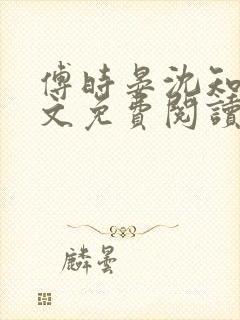 傅時晏沈知
文免費閱讀
麟曇